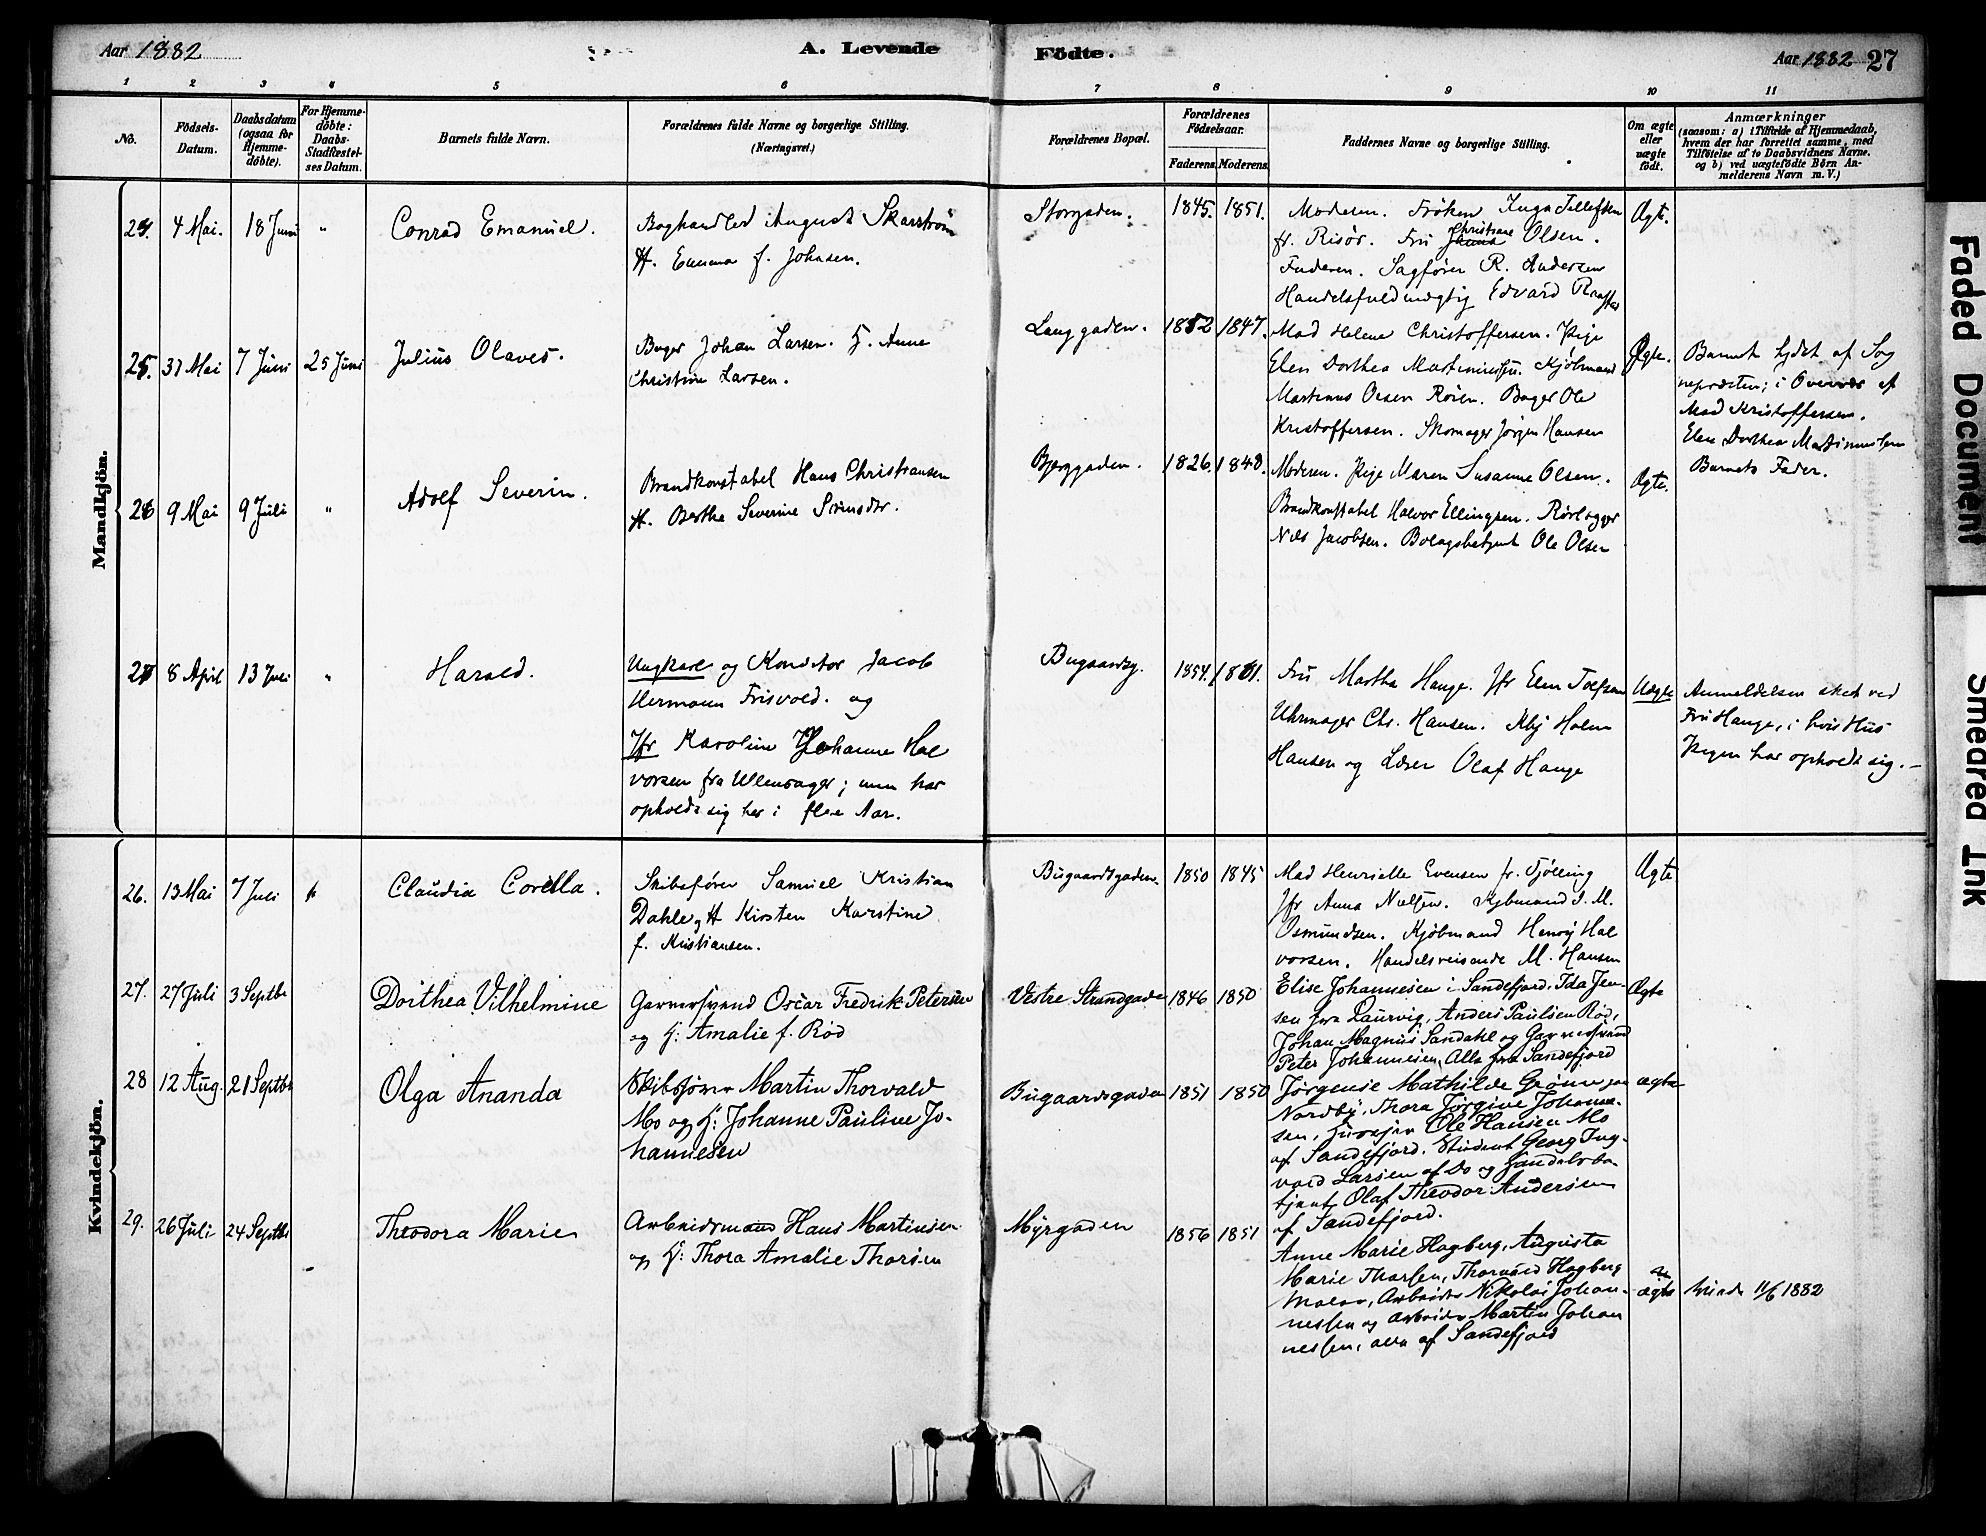 Aar 1882
A. Levende
Födte.
Aar 1882 27
1 2 3 4 5 6 7 8 9 10 11
No.
Födsels-
Datum.
Daabsdatum
(ogsaa for
Hjemme-
döbte).
For Hjemme-
döbte:
Daabs-
Stadfæstel-
ses Datum.
Barnets fulde Navn.
Forældrenes fulde Navne og borgerlige Stilling.
(Næringsvei.)
Forældrenes Bopæl.
Forældrenes
Födselsaar.
Faderens. Moderens.
Faddernes Navne og borgerlige Stilling.
Om ægte
eller
uægte
födt.
Anmærkninger
(saasom: a) i Tilfælde af Hjemmedaab,
hvem der har forrettet samme, med
Tilföielse af to Daabsvidners Navne.
og b) ved uægtefödte Börn An-
melderens Navn m. V.)
Mandkjön.
24. 4 Mai. 18 Juni " Conrad Emanuel.
Boghandler August Skarström
H. Emma f. Johnsen.
Storgaden. 1845. 1851.
Moderen. Frøken Inga Tellefsen
fr. Risør. Fru Christiane Olsen.
Faderen. Sagfører R. Andersen
Handelsfuldmægtig Edvard
Ægte.
25. 31 Mai 7 Juni 25 Juni Julius Olaves.
Bager Johan Larsen. H. Anne
Christine Larsen.
Langgaden. 1852 1847.
Mad Helene Christoffersen. Pige
Elen Dorthea Martiniusen. Kjøbmand
Martinus Olsen Røien. Bager Ole
Kristoffersen. Skomager Jørgen Hansen
Ægte.
Barnet døbt af Sog
nepræsten; i Overvær af
Mad Kristoffersen.
Elen Dorthea Martiniusen
Barnets Fader.
26 9 Mai 9 Juli " Adolf Severin.
Brandkonstabel Hans Christiansen
H. Berthe Severine Sörensdtr.
Bjerggaden. 1826. 1840.
Moderen. Pige Maren Susanne Olsen.
Brandkonstabel Halvor Ellingsen. Rørlægger
Nils Jacobsen. Bolagsbetjent Ole Olsen
Ægte.
27 8 April 13 Juli " Harald.
Ungkarl og Konditor Jacob
Hermann Frisvold. og
Jfr Karoline Johanne Hal
vorsen fra Ullensager; men har
opholdt sig her i flere Aar.
Bugaardsg. 1854. 1861.
Fru Martha Hauge. Jfr Elen Tolfsen
Uhrmager Chr. Hansen. Kbj Holm
Hansen og Lærer Olaf Hauge
Uægte
Anmeldelsen sket ved
Fru Hauge, i hvis Hus
Pigen har opholdt sig. –
Kvindekjön.
26. 13 Mai 7 Juli " Claudia Corella.
Skibsfører Samuel Kristian
Dahle og H Kirsten Karstine
f. Kristiansen.
Bugaardsgaden. 1850 1845
Mad Henriette Evensen fr. Tjølling
Jfr Anna Nielsen. Kjøbmand I. M.
Osmundsen. Kjøbmand Henrij Hal
vorsen. Handelsreisende M. Hansen
Ægte
27. 27 Juli 3 Septbr Dorthea Vilhelmine
Garversvend Oscar Fredrik Petersen
og H: Amalie f. Rød
Vestre Strandgade 1846 1850
Elise Johannesen i Sandefjord, Ida Jen-
sen fra Laurvig, Anders Paulsen Rød,
Johan Magnus Sandahl og Garversvend
Peter Johannesen, Alle fra Sandefjord
Ægte
28 12 Aug. 21 Septbr Olga Ananda
Skibsfører Martin Thorvald
Mo og H: Johanne Pauline Jo-
hannesen
Bugaardsgaden 1851 1850
Jørgensie Mathilde Grønn paa
Nordby, Thora Jørgine Johanne-
sen, Huseier Ole Hansen Mo
af Sandefjord. Student Georg Ing-
vard Larsen af Do og Handelsbe-
tjent Olaf Theodor Andersen
af Sandefjord.
ægte
29. 26 Juli 24 Septbr Theodora Marie
Arbeidsmand Hans Martinsen
og H: Thora Amalie Thorsen
Myrgaden 1856 1851
Anne Marie Hagberg, Augusta
Marie Thorsen, Thorvald Hagberg
Maler, Arbeider Nikolai Johan-
nessen og arbeider Martin Johan
nessen, alle af Sandefjord
ægte
11/6 1882
Faded Document
Smeared Ink